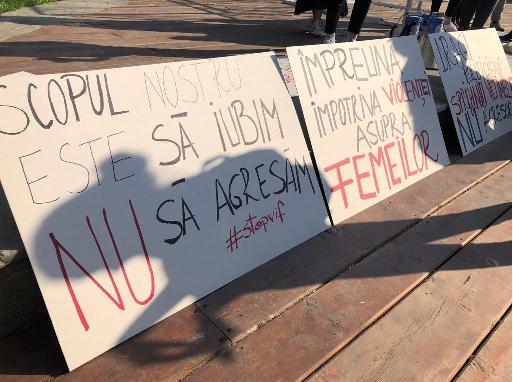 SCOPUL NOSTRU
ESTE SĂ IUBIM
NU SĂ AGRESĂM
#stopvif
ÎMPREUNĂ
ÎMPOTRIVA VIOLENȚEI
ASUPRA
FEMEILOR
NU